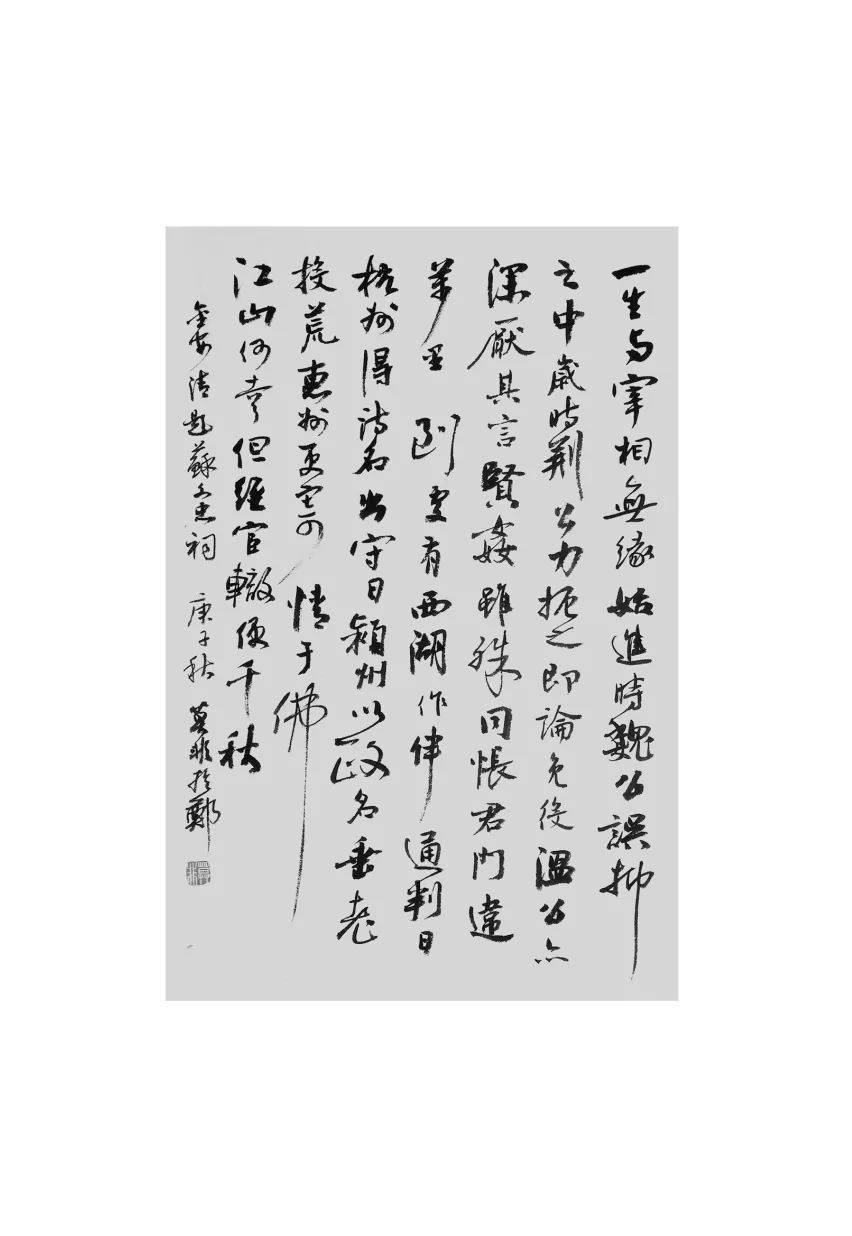 一生与宰相無緣始進時魏公誤抑
之中歲時荆公力扼之即論免役溫公亦
深厭其言賢姦雖殊同悵君門違
萬里到處有西湖作伴通判日
杭州得詩名出守日潁州以政名垂老
投荒惠州更寄情于佛
江山何幸但經官轍便千秋
金安清題蘇文忠祠 庚子秋 莫非於鄭